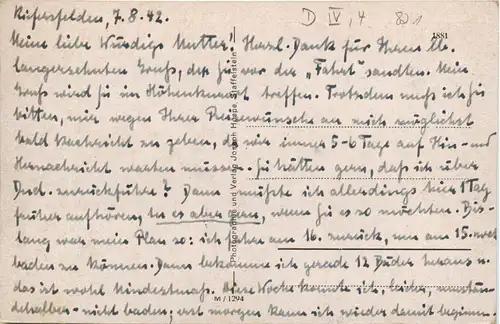 Kiefersfelden, 7.8.42.
D IV, 4
1881
Meine liebe Würdige Mutter! Herzl. Dank für Ihren lb.
langersehnten Gruß, den Sie vor der „Fahrt" sandten. Mein
Gruß wird Sie im Höhenkurort treffen. Trotzdem muß ich Sie
bitten, mir wegen Ihrer Reisewünsche an mich möglichst
bald Nachricht zu geben, da wir immer 5-6 Tage auf Hin- und
Hernachricht warten müssen. Sie hätten gern, daß ich über
Dud. zurückführe? Dann müßte ich allerdings hier 1 Tag
früher aufhören, tu es aber gern, wenn Sie es so möchten. Bis-
lang war mein Plan so: ich fahre am 16. zurück, um am 15. noch
baden zu können. Dann bekomme ich gerade 12 Bäder heraus u.
das ist wohl Mindestmaß. Diese Woche konnte ich, leider, umstän-
dehalber nicht baden, erst morgen kann ich wieder damit beginn.
Photographie und Verlag Joseph Hospe, Staffelstein
M/1294